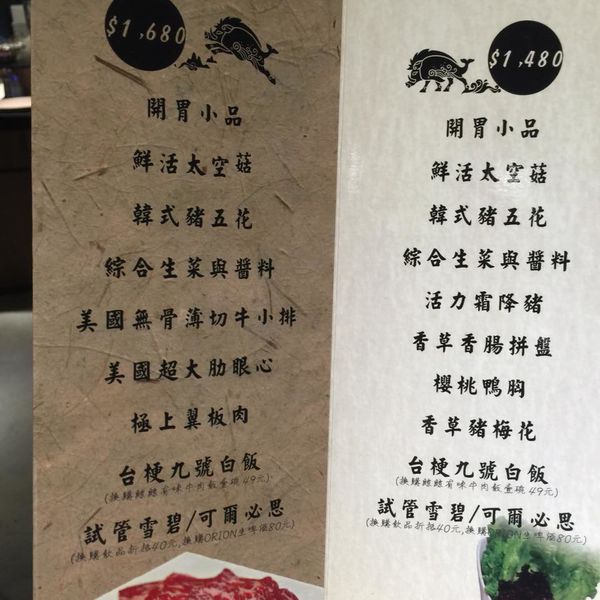 $1,680
開胃小品
鮮活太空菇
韓式豬五花
綜合生菜與醬料
美國無骨薄切牛小排
美國超大肋眼心
極上翼板肉
台梗九號白飯
(換購鯨鯨有味牛肉飯壹碗 49元)
試管雪碧/可爾必思
(換購飲品折抵40元,換購ORION生啤酒80元)
$1,480
開胃小品
鮮活太空菇
韓式豬五花
綜合生菜與醬料
活力霜降豬
香草香腸拼盤
櫻桃鴨胸
香草豬梅花
台梗九號白飯
(換購鯨鯨有味牛肉飯壹碗 49元)
試管雪碧/可爾必思
(換購飲品折抵40元,換購ORION生啤酒80元)